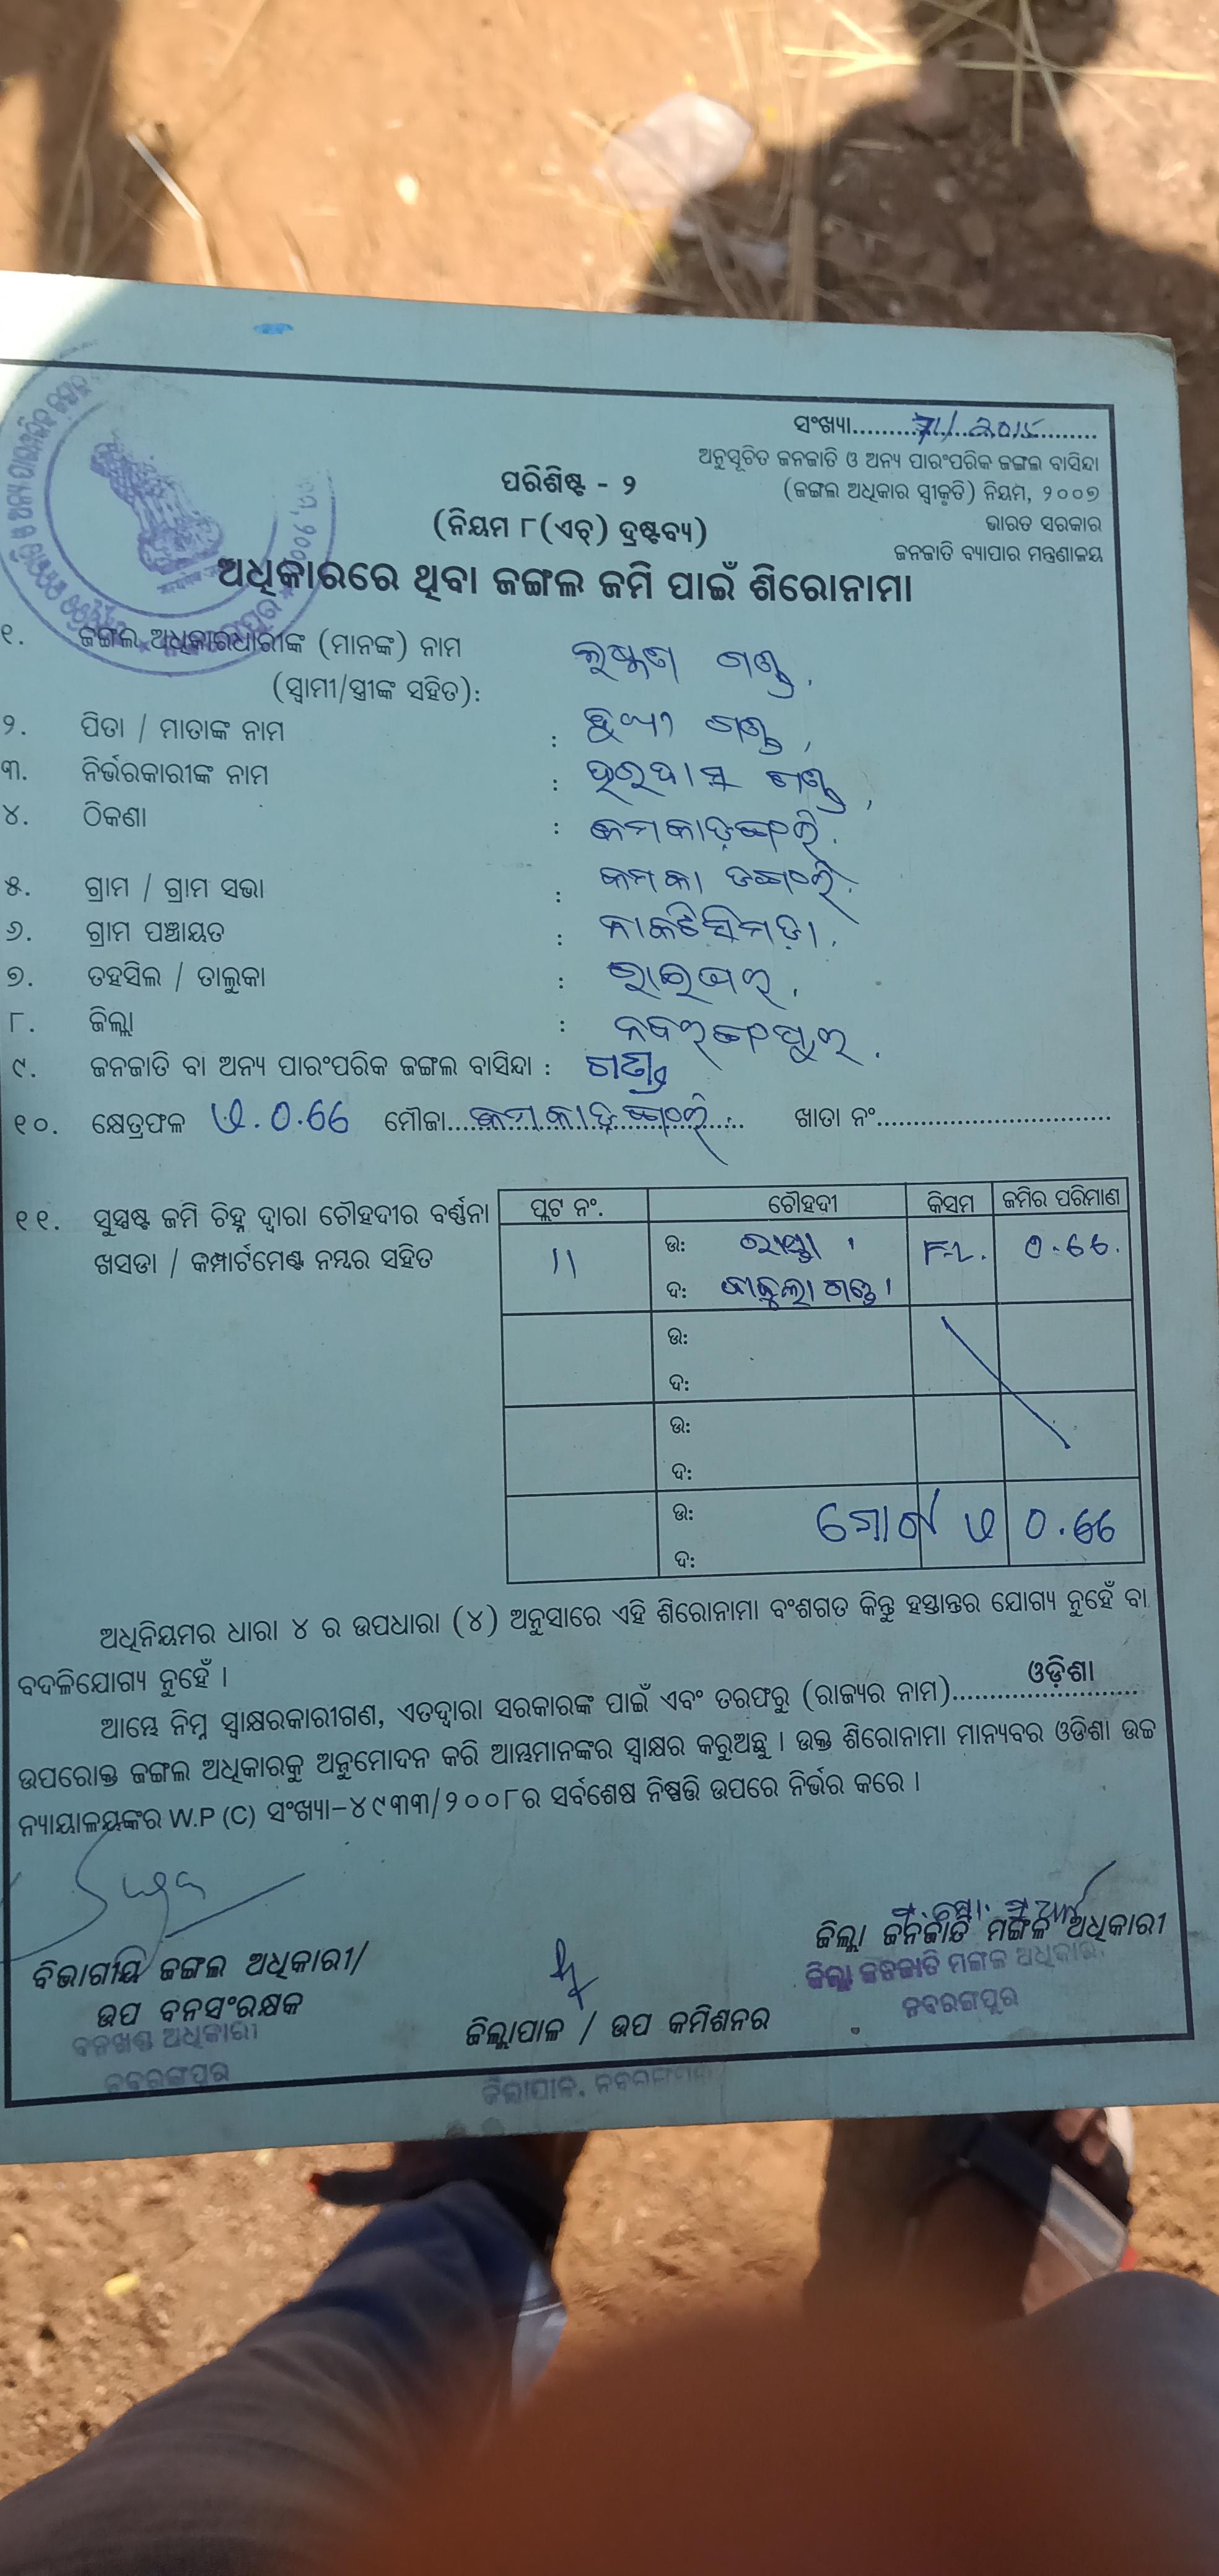 ସଂଖ୍ୟା.......... 71/2015
ଅନୁସୂଚିତ ଜନଜାତି ଓ ଅନ୍ୟ ପାରଂପରିକ ଜଙ୍ଗଲ ବାସିନ୍ଦା
(ଜଙ୍ଗଲ ଅଧିକାର ସ୍ୱୀକୃତି) ନିୟମ, ୨୦୦୭
ଭାରତ ସରକାର
ଜନଜାତି ବ୍ୟାପାର ମନ୍ତ୍ରଣାଳୟ
ପରିଶିଷ୍ଟ - ୨
(ନିୟମ ୮(ଏଚ୍) ଦ୍ରଷ୍ଟବ୍ୟ)
ଅଧିକାରରେ ଥିବା ଜଙ୍ଗଲ ଜମି ପାଇଁ ଶିରୋନାମା
୧. ଜଙ୍ଗଲ ଅଧିକାରଧାରୀଙ୍କ (ମାନଙ୍କ) ନାମ ଗଣ୍ଡ
(ସ୍ୱାମୀ/ସ୍ତ୍ରୀଙ୍କ ସହିତ):
୨. ପିତା / ମାତାଙ୍କ ନାମ : ଗଣ୍ଡ
୩. ନିର୍ଭରକାରୀଙ୍କ ନାମ : ଗଣ୍ଡ
୪. ଠିକଣା :
୫. ଗ୍ରାମ / ଗ୍ରାମ ସଭା :
୬. ଗ୍ରାମ ପଞ୍ଚାୟତ :
୭. ତହସିଲ / ତାଲୁକା : ରାଇଘର
୮. ଜିଲ୍ଲା : ନବରଙ୍ଗପୁର
୯. ଜନଜାତି ବା ଅନ୍ୟ ପାରଂପରିକ ଜଙ୍ଗଲ ବାସିନ୍ଦା : ଗଣ୍ଡ
୧୦. କ୍ଷେତ୍ରଫଳ ଏ. 0.66 ମୌଜା.......... ଖାତା ନଂ..........
୧୧. ସୁସ୍ପଷ୍ଟ ଜମି ଚିହ୍ନ ଦ୍ୱାରା ଚୌହଦୀର ବର୍ଣ୍ଣନା
ଖସଡା / କମ୍ପାର୍ଟମେଣ୍ଟ ନମ୍ବର ସହିତ
ପ୍ଲଟ ନଂ. ଚୌହଦୀ କିସମ ଜମିର ପରିମାଣ
11 ଉ: ରାସ୍ତା । F.L. 0.66.
ଦ: ଗଣ୍ଡ ।
ଉ:
ଦ:
ଉ:
ଦ:
ଉ: ମୋଟ ଏ 0.66
ଦ:
ଅଧିନିୟମର ଧାରା ୪ ର ଉପଧାରା (୪) ଅନୁସାରେ ଏହି ଶିରୋନାମା ବଂଶଗତ କିନ୍ତୁ ହସ୍ତାନ୍ତର ଯୋଗ୍ୟ ନୁହେଁ ବା
ବଦଳିଯୋଗ୍ୟ ନୁହେଁ ।
ଆମ୍ଭେ ନିମ୍ନ ସ୍ୱାକ୍ଷରକାରୀଗଣ, ଏତଦ୍ୱାରା ସରକାରଙ୍କ ପାଇଁ ଏବଂ ତରଫରୁ (ରାଜ୍ୟର ନାମ)....ଓଡ଼ିଶା....
ଉପରୋକ୍ତ ଜଙ୍ଗଲ ଅଧିକାରକୁ ଅନୁମୋଦନ କରି ଆମ୍ଭମାନଙ୍କର ସ୍ୱାକ୍ଷର କରୁଅଛୁ । ଉକ୍ତ ଶିରୋନାମା ମାନ୍ୟବର ଓଡିଶା ଉଚ୍ଚ
ନ୍ୟାୟାଳୟଙ୍କର W.P (C) ସଂଖ୍ୟା-୪୯୩୩/୨୦୦୮ର ସର୍ବଶେଷ ନିଷ୍ପତ୍ତି ଉପରେ ନିର୍ଭର କରେ ।
ବିଭାଗୀୟ ଜଙ୍ଗଲ ଅଧିକାରୀ/
ଉପ ବନସଂରକ୍ଷକ
ବନଖଣ୍ଡ ଅଧିକାରୀ
ନବରଙ୍ଗପୁର
ଜିଲ୍ଲାପାଳ / ଉପ କମିଶନର
ଜିଲ୍ଲାପାଳ, ନବରଙ୍ଗପୁର
ଜିଲ୍ଲା ଜନଜାତି ମଙ୍ଗଳ ଅଧିକାରୀ
ଜିଲ୍ଲା ଜନଜାତି ମଙ୍ଗଳ ଅଧିକାରୀ,
ନବରଙ୍ଗପୁର